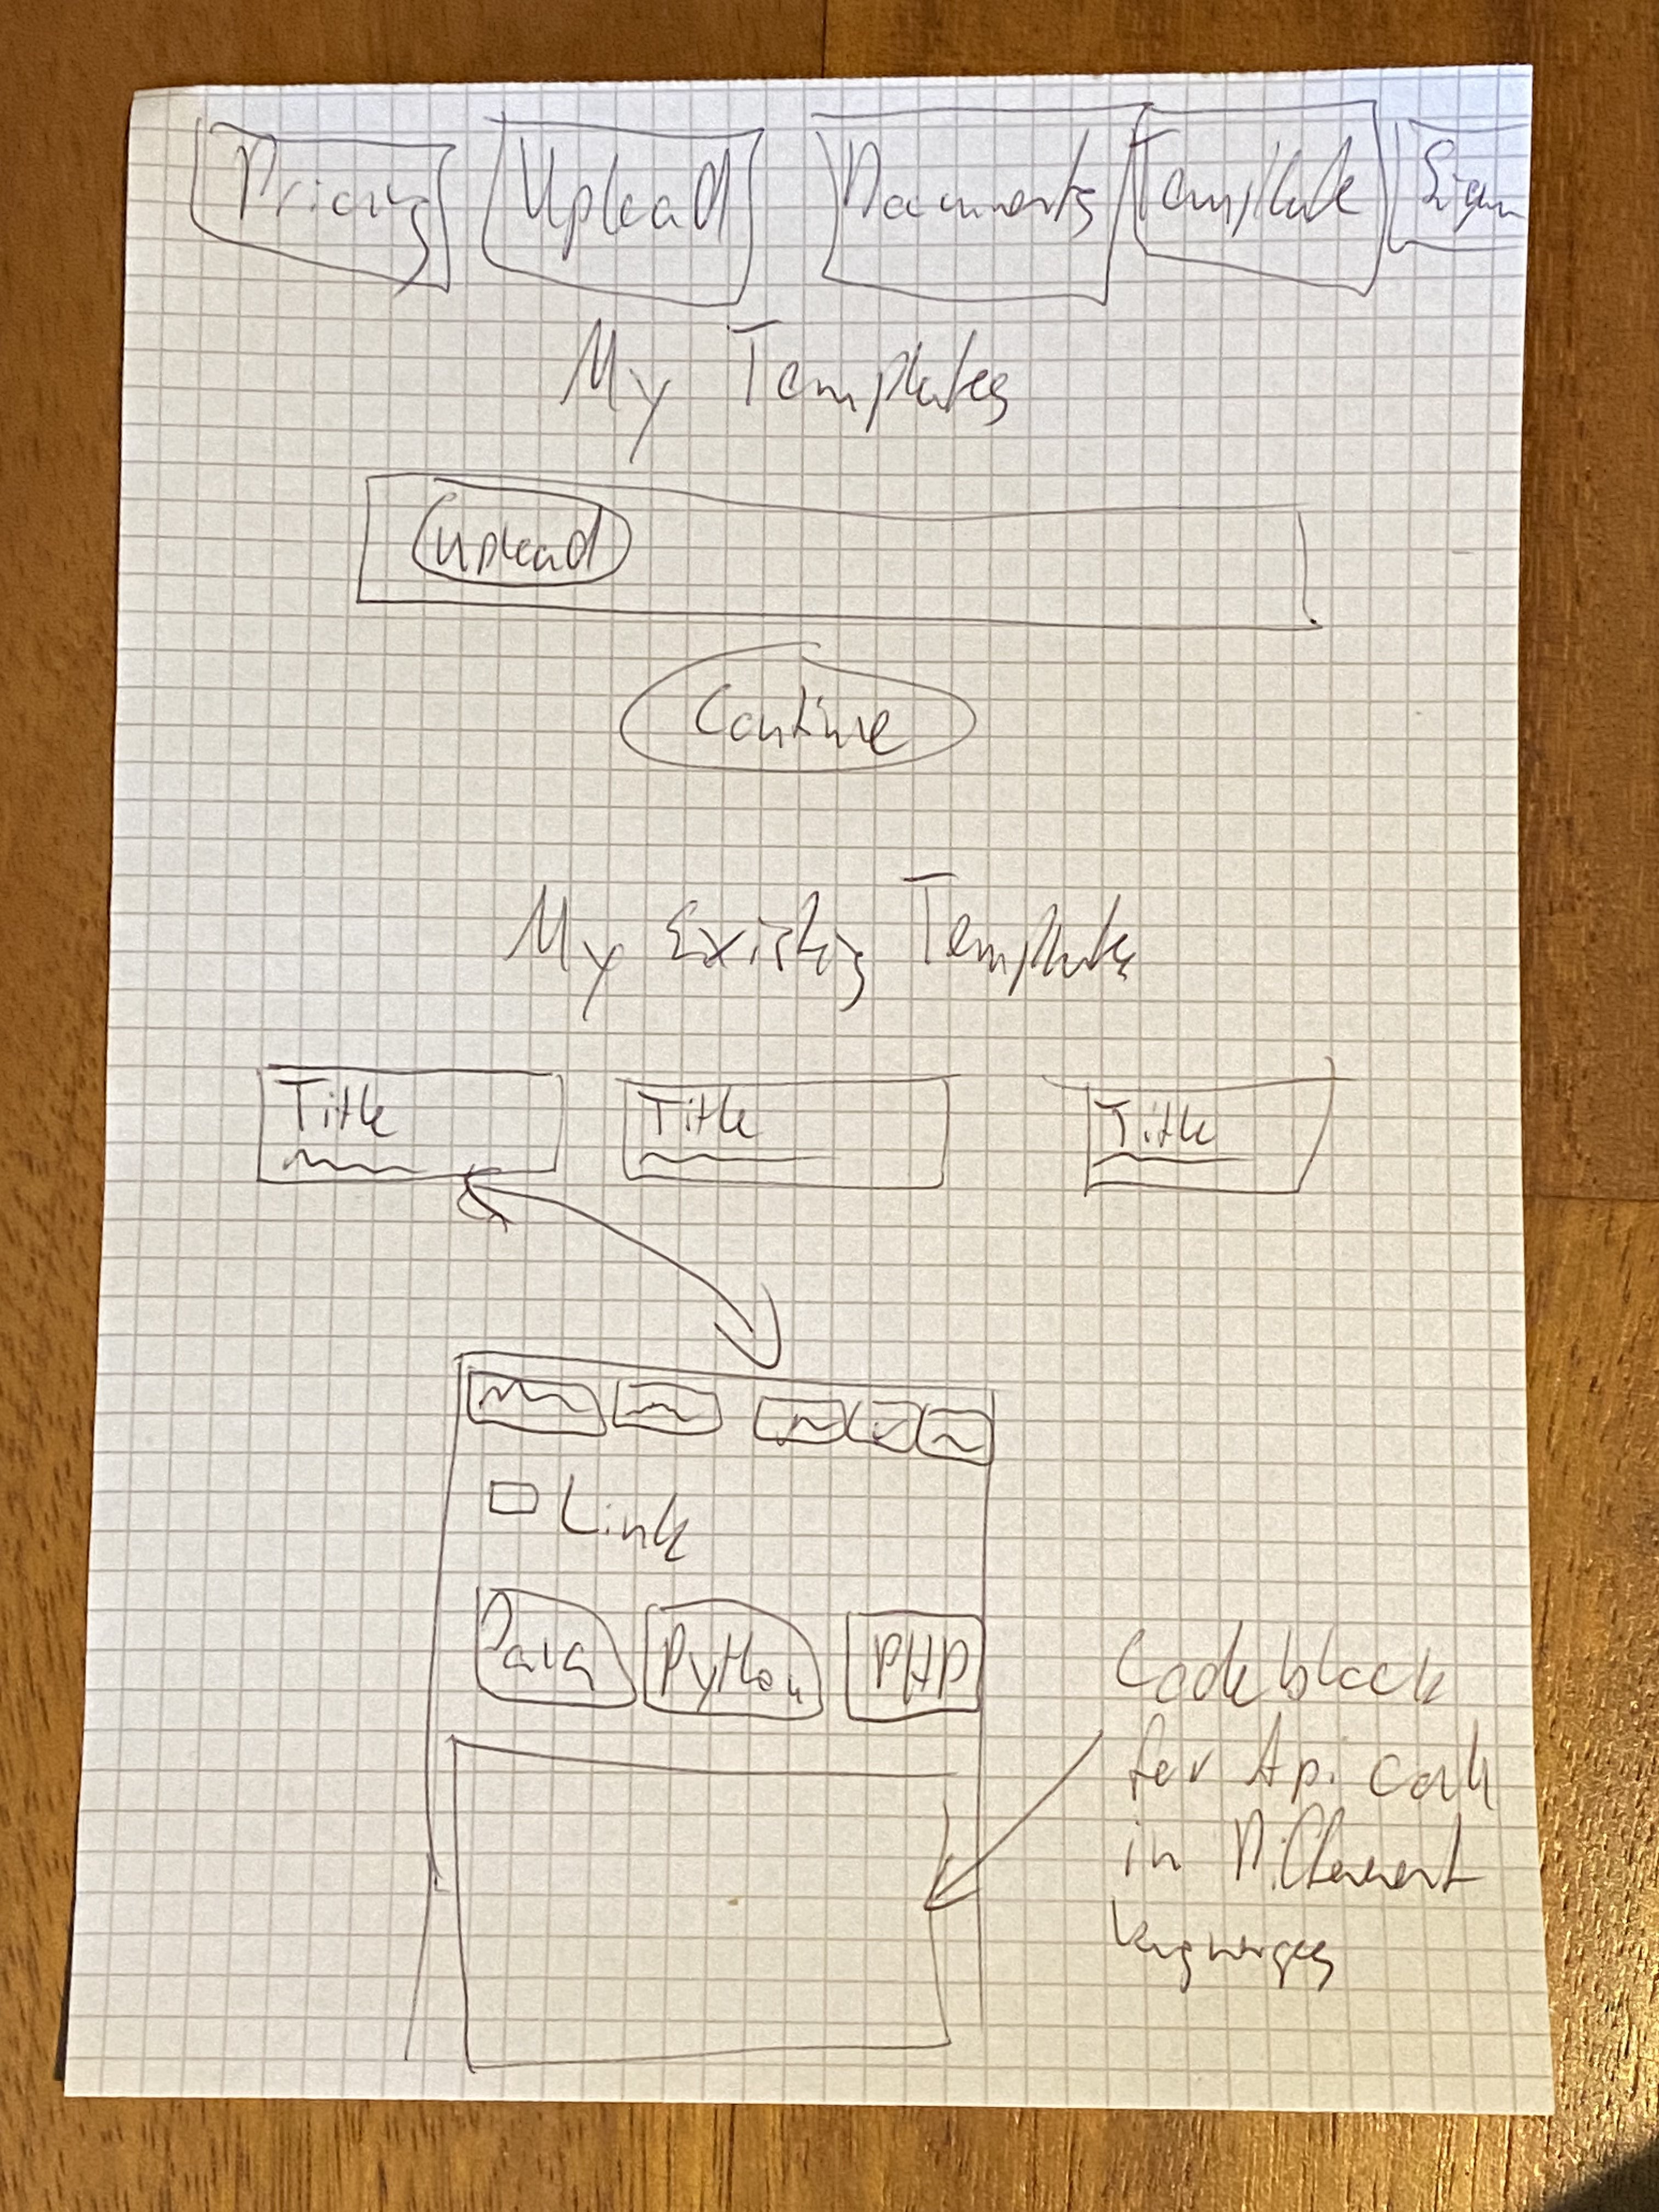 Pricing Upload Documents Template Sign
My Templates
Upload
Continue
My Existing Templates
Title Title Title
Link
Java Python PHP
Codeblock
for Api call
in Different
languages